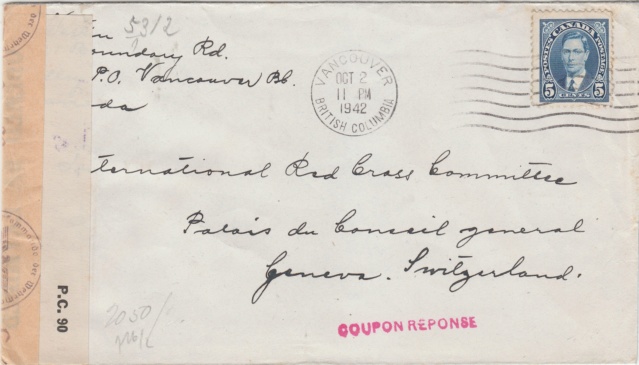 5312
oundary Rd.
P.O. Vancouver Bb.
da
VANCOUVER
OCT 2
11 PM
1942
BRITISH COLUMBIA
POSTES CANADA POSTAGE
5 CENTS 5
ternational Red Cross Committee
Palais du Conseil general
Geneva. Switzerland.
COUPON REPONSE
P.C. 90
2050/